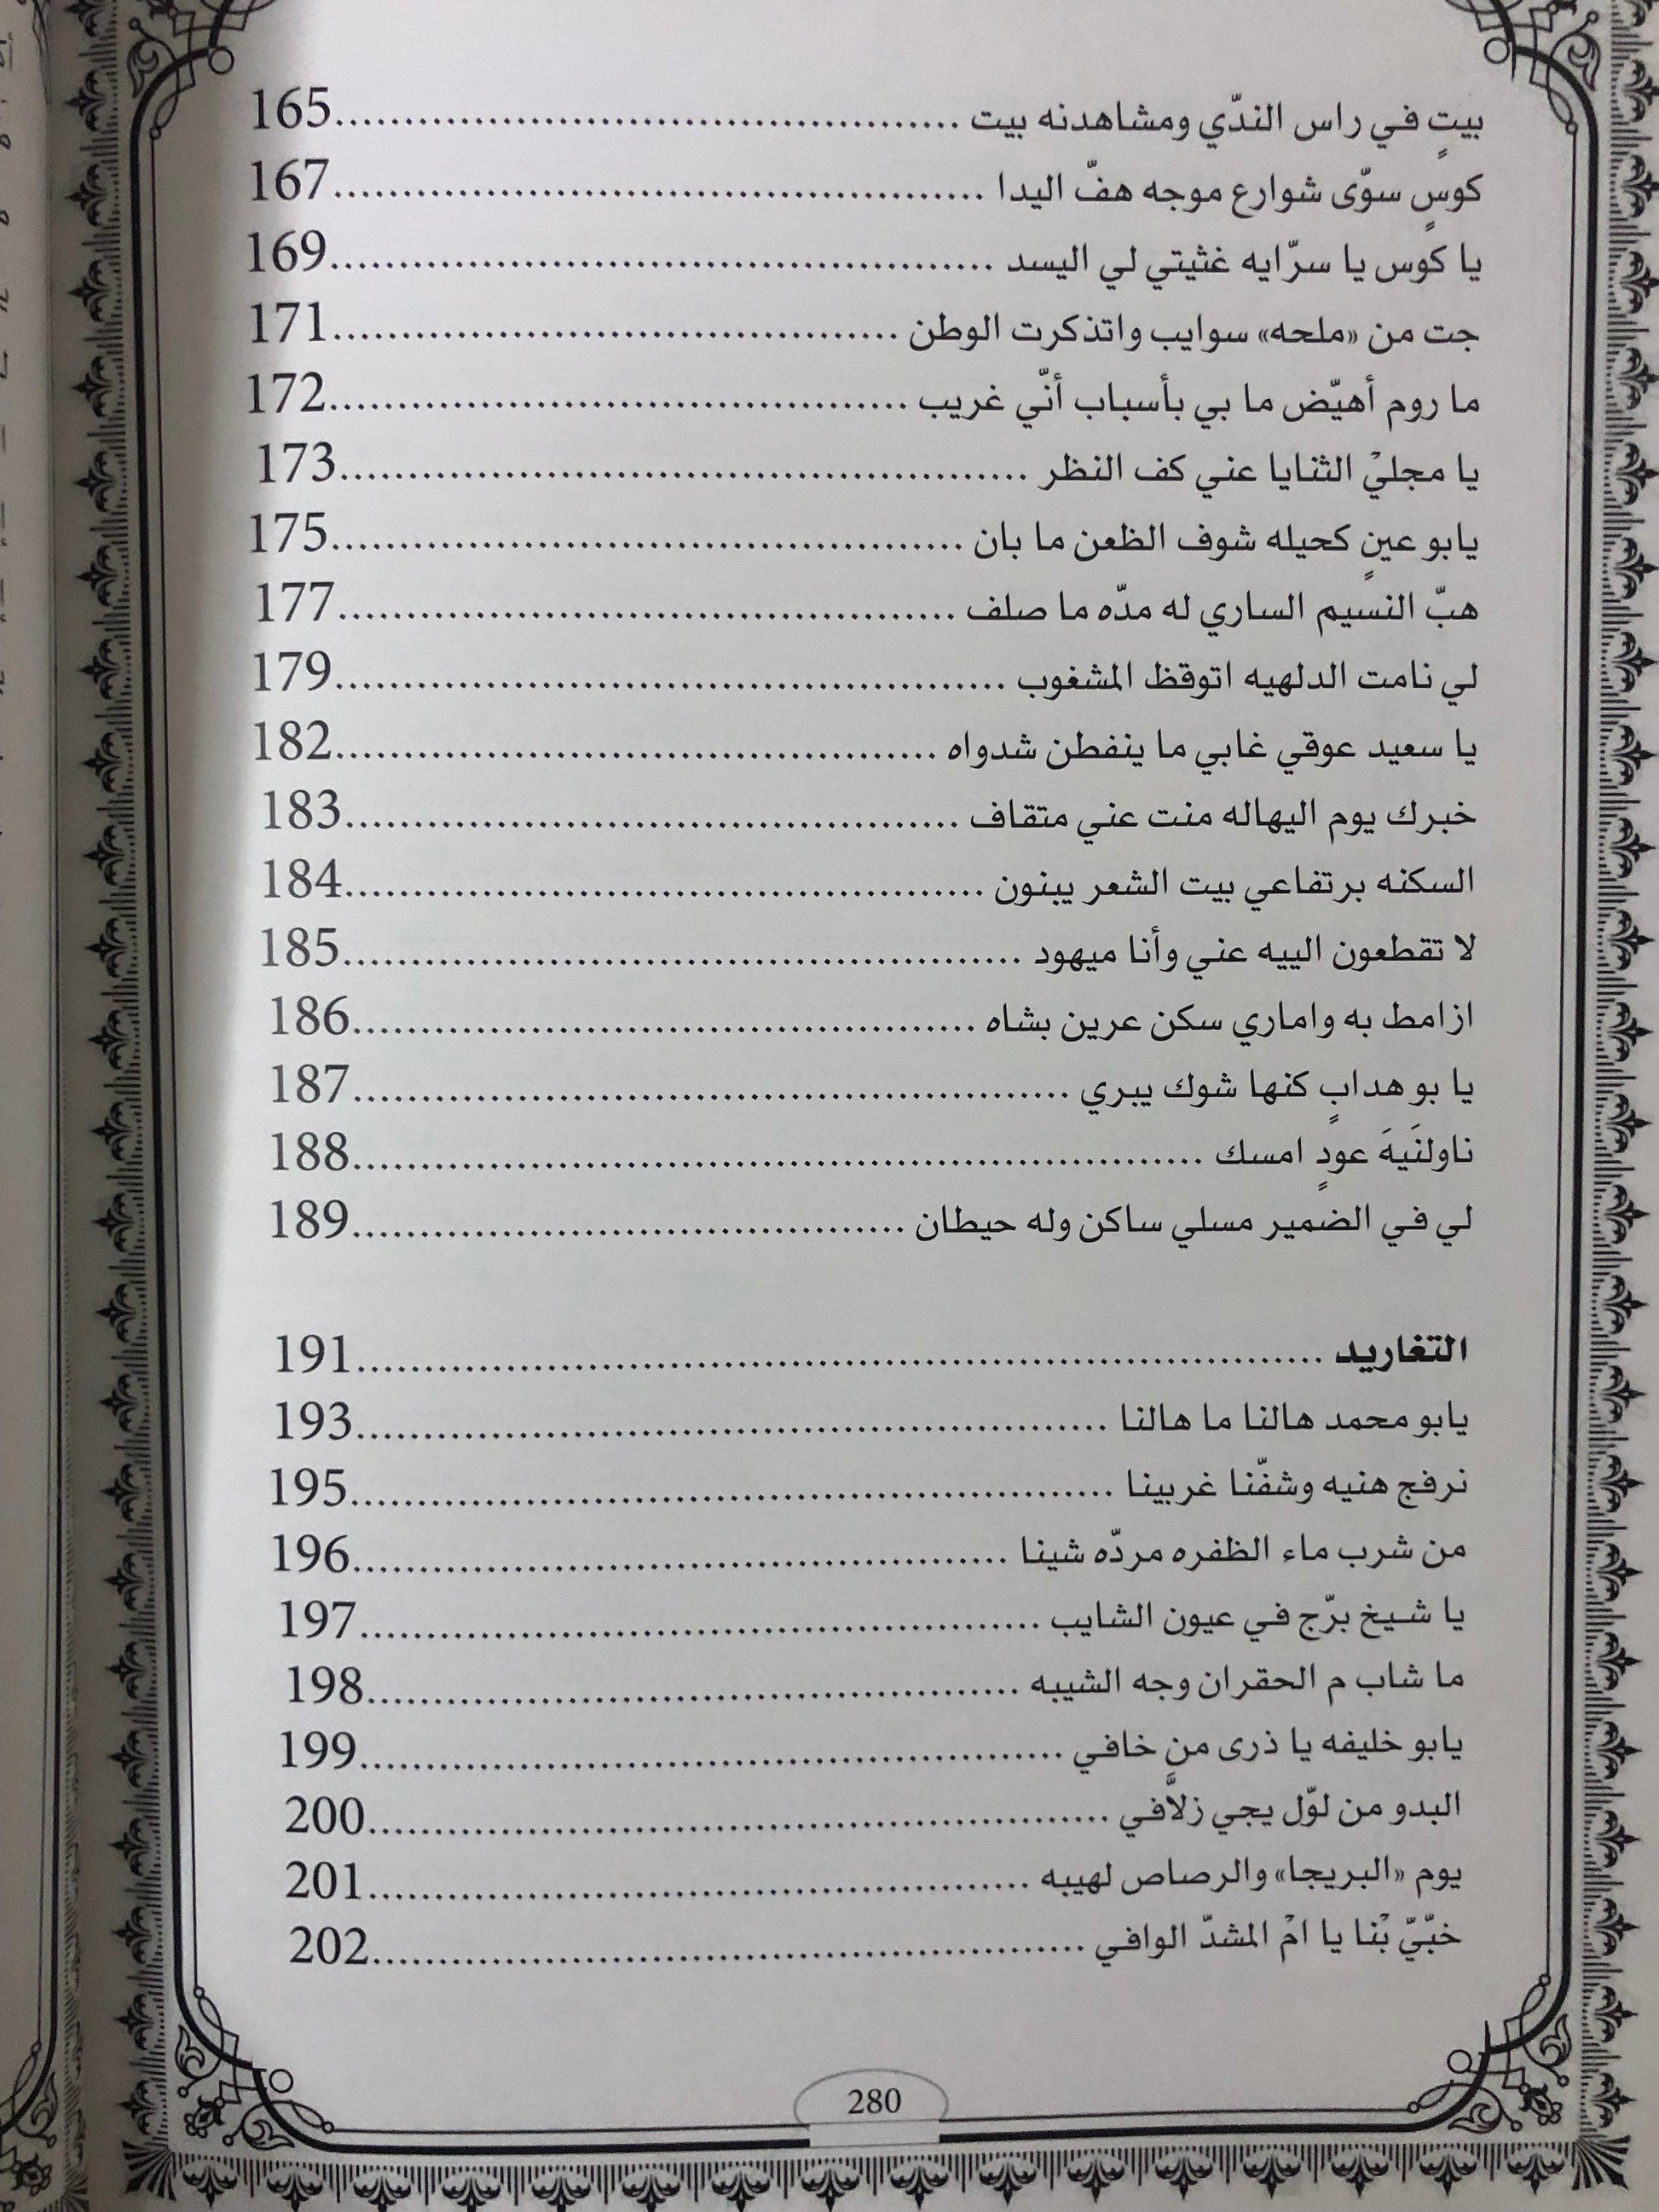 بيتٍ في راس الندّي ومشاهدنه بيت ........ 165
كوسٍ سوّى شوارع موجه هفّ اليدا ........ 167
يا كوس يا سرّايه غثيتي لي اليسد ........ 169
جت من «ملحه» سوايب واتذكرت الوطن ........ 171
ما روم أهيّض ما بي بأسباب أنّي غريب ........ 172
يا مجليْ الثنايا عني كف النظر ........ 173
يابو عينٍ كحيله شوف الظعن ما بان ........ 175
هبّ النسيم الساري له مدّه ما صلف ........ 177
لي نامت الدلهيه اتوقظ المشغوب ........ 179
يا سعيد عوقي غابي ما ينفطن شدواه ........ 182
خبرك يوم اليهاله منت عني متقاف ........ 183
السكنه برتفاعي بيت الشعر يبنون ........ 184
لا تقطعون الييه عني وأنا ميهود ........ 185
ازامط به واماري سكن عرين بشاه ........ 186
يا بو هدابٍ كنها شوك يبري ........ 187
ناولنَيهَ عودٍ امسك ........ 188
لي في الضمير مسلي ساكن وله حيطان ........ 189
التغاريد ........ 191
يابو محمد هالنا ما هالنا ........ 193
نرفج هنيه وشفّنا غربينا ........ 195
من شرب ماء الظفره مردّه شينا ........ 196
يا شيخ برّج في عيون الشايب ........ 197
ما شاب م الحقران وجه الشيبه ........ 198
يابو خليفه يا ذرى من خافي ........ 199
البدو من لوّل يجي زلاَّفي ........ 200
يوم «البريجا» والرصاص لهيبه ........ 201
خبّيّ بْنا يا امْ المشدّ الوافي ........ 202
280